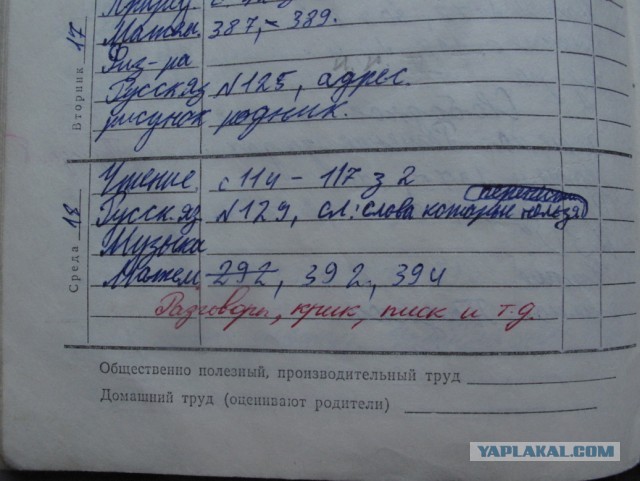 Матем. 387, - 389.
Вторник 17
Физ-ра
Русск.яз N 125, адрес.
рисунок родник.
Чтение с 114 - 117 з 2
Русск.яз N 129, сл: слова которые нельзя
Среда 18
Музыка
Матем. 292, 392, 394
Разговоры, крик, писк и т.д.
Общественно полезный, производительный труд
Домашний труд (оценивают родители)
YAPLAKAL.COM